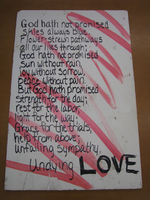 God hath not promised
Skies always blue,
Flower-strewn pathways
all our lives through;
God hath not promised
sun without rain,
Joy without sorrow,
Peace without pain.
But God hath promised
strength for the day,
rest for the labor,
light for the way;
Grace for the trials,
help from above;
unfailing sympathy,
Undying LOVE